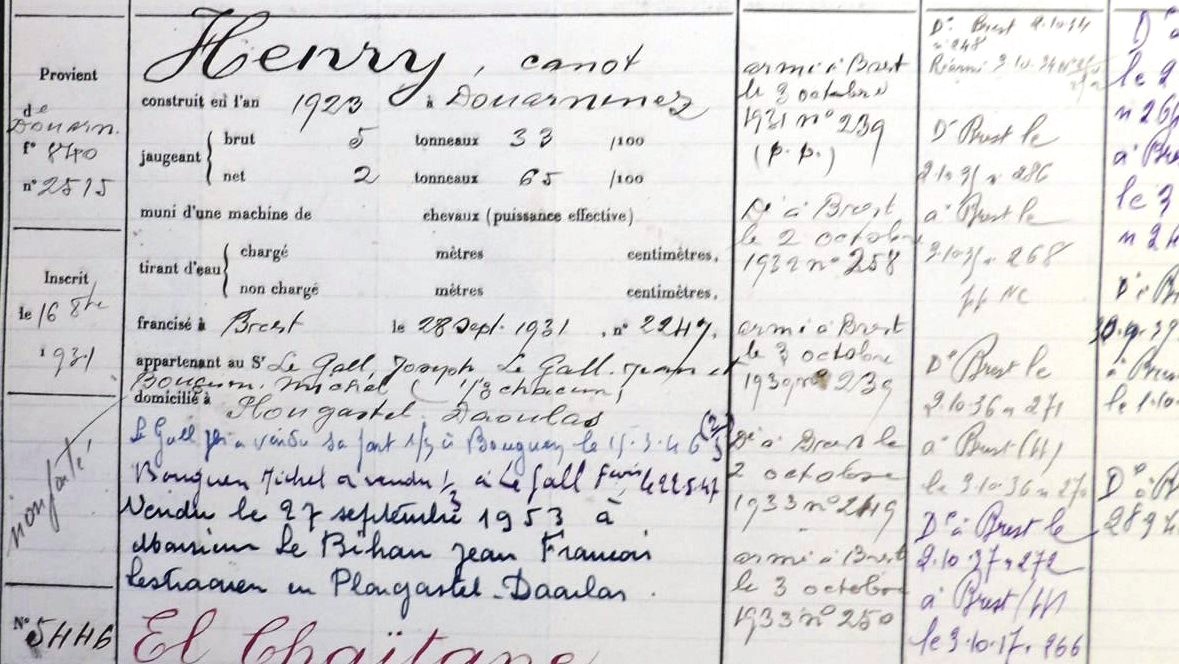 Provient
de
Douarn.
f° 840
n° 2515
Inscrit
le 16 8bre
1931
N°
5446
Henry, canot
construit en l'an 1923 à Douarnenez
jaugeant
brut 5 tonneaux 33 /100
net 2 tonneaux 65 /100
muni d'une machine de chevaux (puissance effective)
tirant d'eau
chargé mètres centimètres.
non chargé mètres centimètres.
francisé à Brest le 28 Sept. 1931 , n° 2247.
appartenant au Sr Le Gall, Joseph Le Gall. Jean et
Bouguen. Michel ( 1/3 chacun)
domicilié à Plougastel Daoulas
Le Gall a vendu sa part 1/3 à Bouguen le 15.3.46
Bouguen Michel a vendu 1/3 à Le Gall
Vendu le 27 septembre 1953 à
Monsieur Le Bihan Jean Francois
Lestraouen en Plougastel-Daoulas.
El Chaïtane
armé à Brest
le 3 octobre
1931 n° 239
(p.p.)
D° à Brest
le 2 octobre
1932 n° 258
armé à Brest
le 3 octobre
n° 239
D° à Brest le
2 octobre
1933 n° 249
armé à Brest
le 3 octobre
1933 n° 250
D° Brest 2.10.34
n° 248
Réarmé 3.10.34
D° Brest le
2.10.35 n 286
à Brest le
3.10.35 n 268
D° Brest le
2.10.36 n 271
à Brest
le 3.10.36 n
D° à Brest le
2.10.37 n 272
à Brest
le 3.10. 266
D° à
le 2
n 26
à Bre
le 3
n 2
D° à B
30.9.39
à Bres
le 1.10
D° à B